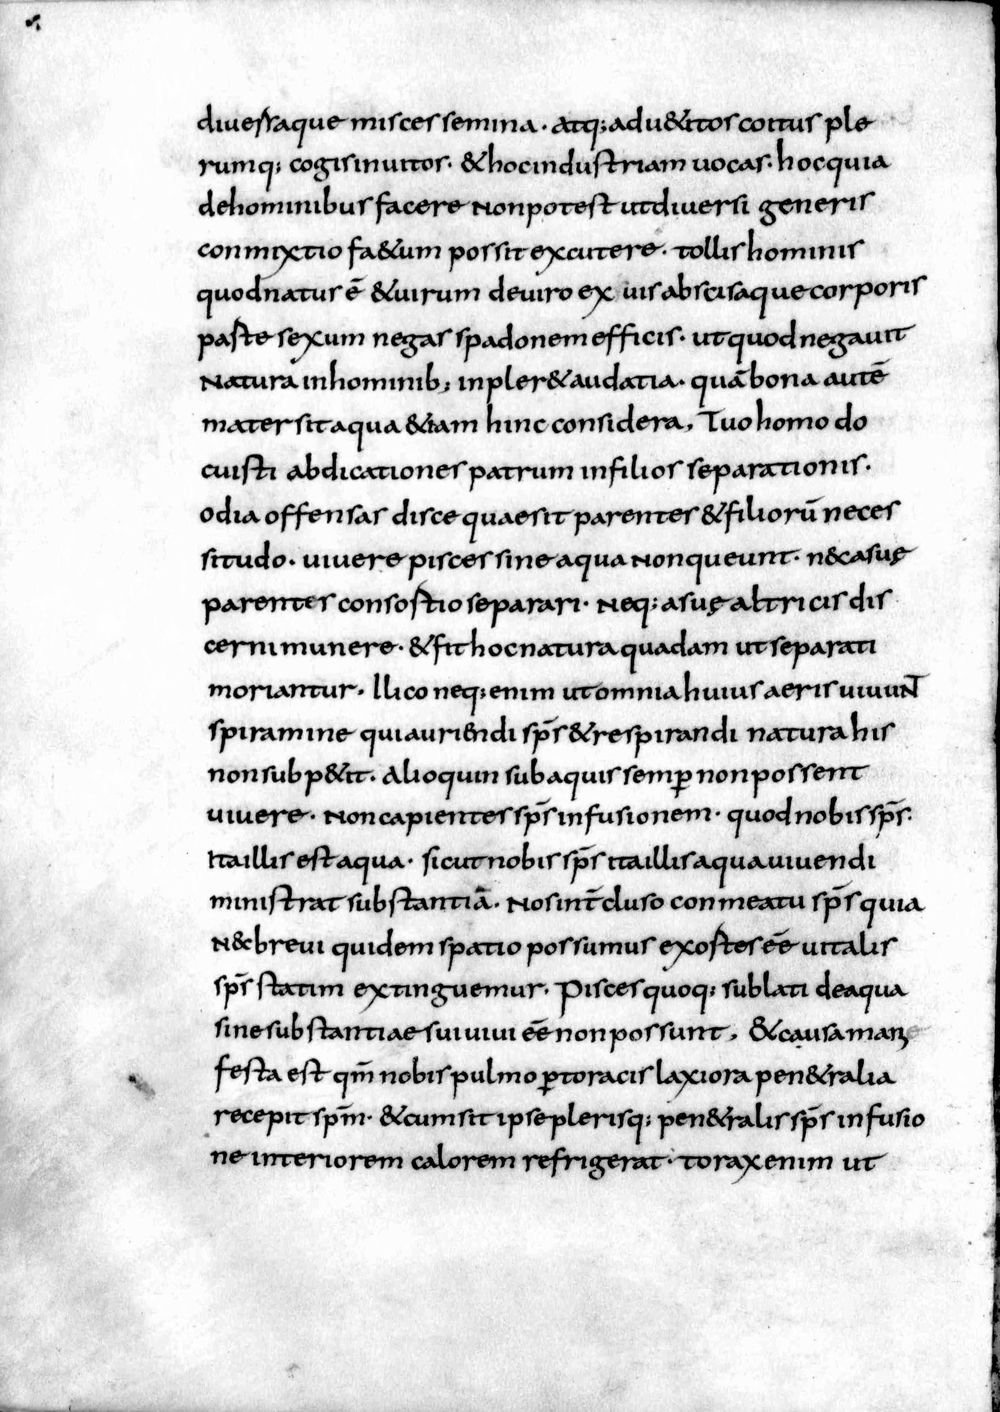 diuersaque misces semina · atq; aduetitos coitus ple
rumq; cogis inuitos · & hoc industriam uocas · hoc quia
de hominibus facere non potest ut diversi generis
conmixtio fa&um possit excutere · tollis hominis
quod natus ē & uirum de viro ex uis abscisaque corporis
paste sexum negas spadonem efficis · ut quod negauit
Natura in hominib; inpler& audatia · quā bona autē
mater sit aqua &iam hinc considera, Tu o homo do
cuisti abdicationes patrum in filios separationis ·
odia offensas disce quae sit parentes & filiorū neces
situdo · uiuere pisces sine aqua non queunt · n&c a suę
parentes consostio separari · Neq; a suę altricis dis
cerni munere · & fit hoc natura quadam ut separati
moriantur · Ilico neq; enim ut omnia huius aeris uiuuNT
spiramine qui auriendi sp̄s & respirandi natura his
non subp&it · Alioquin sub aquis semp̱ non possent
uiuere · Non capientes sp̄s infusionem · quod nobis sp̄s ·
Ita illis est aqua · sicut nobis sp̄s ita illis aqua uiuendi
ministrat substantiā · Nos int̄cluso conmeatu sp̄s quia
N&c brevi quidem spatio possumus exostes ēe uitalis
sp̄s statim extinguemur · Pisces quoq; sublati de aqua
sine substantiae sui uiui ēe non possunt, & causa mani
festa est qm̄ nobis pulmo p̱ toracis laxiora pen&ralia
recepit sp̄m · & cum sit ipse plerisq; pen&ralis sp̄s infusio
ne interiorem calorem refrigerat · torax enim ut